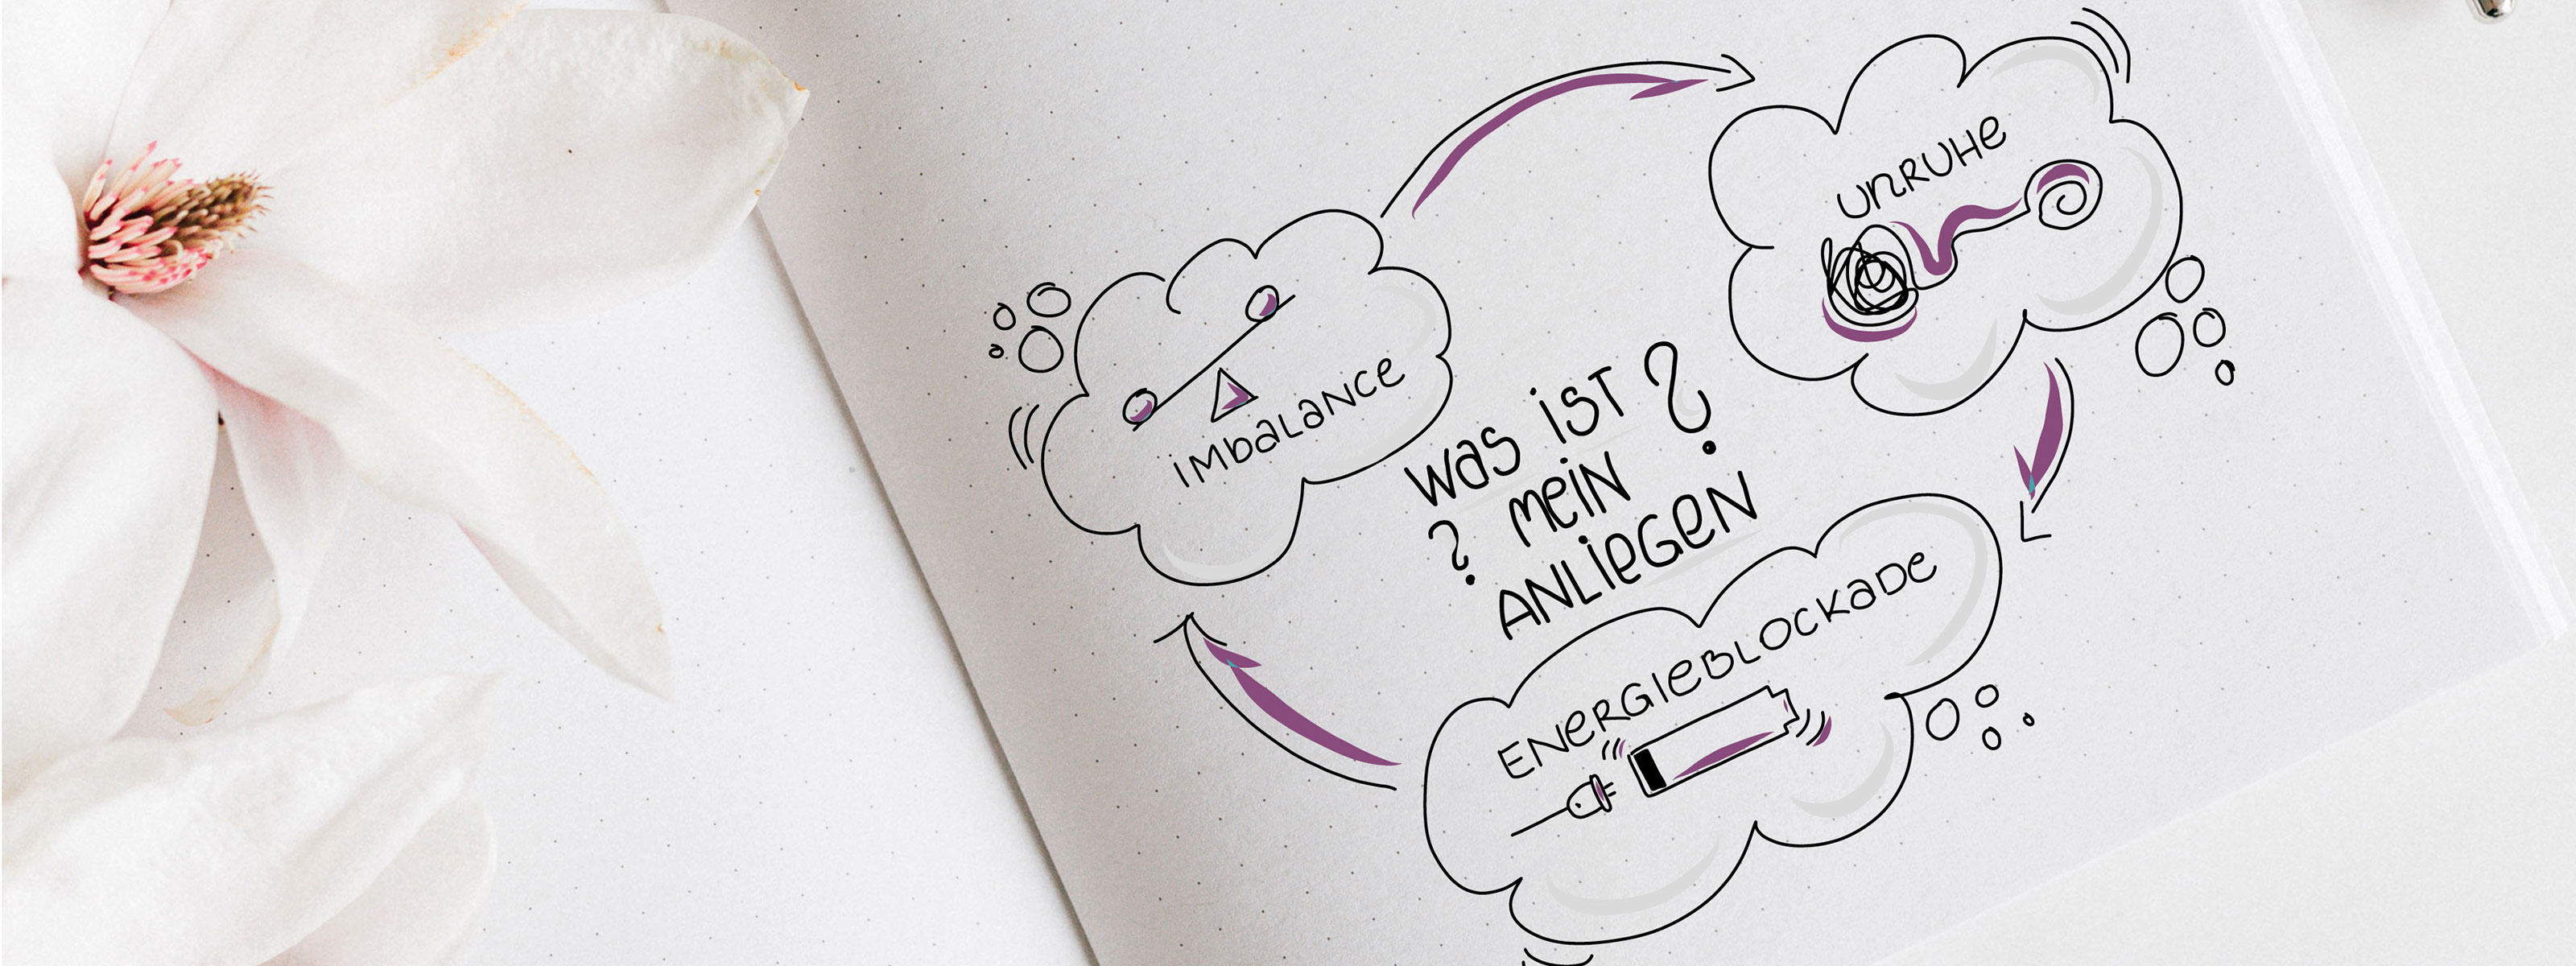 UNRUHE
IMBALANCE
WAS IST ?
? MEIN
ANLIEGEN
ENERGIEBLOCKADE